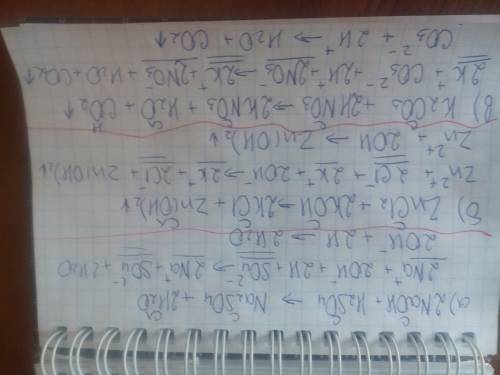 а) 2NaOH + H₂SO₄ → Na₂SO₄ + 2H₂O
2Na⁺ + 2OH⁻ + 2H⁺ + SO₄²⁻ → 2Na⁺ + SO₄²⁻ + 2H₂O
2OH⁻ + 2H⁺ → 2H₂O
б) ZnCl₂ + 2KOH → 2KCl + Zn(OH)₂↓
Zn²⁺ + 2Cl⁻ + 2K⁺ + 2OH⁻ → 2K⁺ + 2Cl⁻ + Zn(OH)₂↓
Zn²⁺ + 2OH⁻ → Zn(OH)₂↓
в) K₂CO₃ + 2HNO₃ → 2KNO₃ + H₂O + CO₂↑
2K⁺ + CO₃²⁻ + 2H⁺ + 2NO₃⁻ → 2K⁺ + 2NO₃⁻ + H₂O + CO₂↑
CO₃²⁻ + 2H⁺ → H₂O + CO₂↑